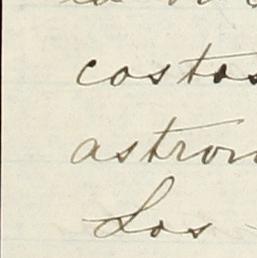 costos
astron
Los